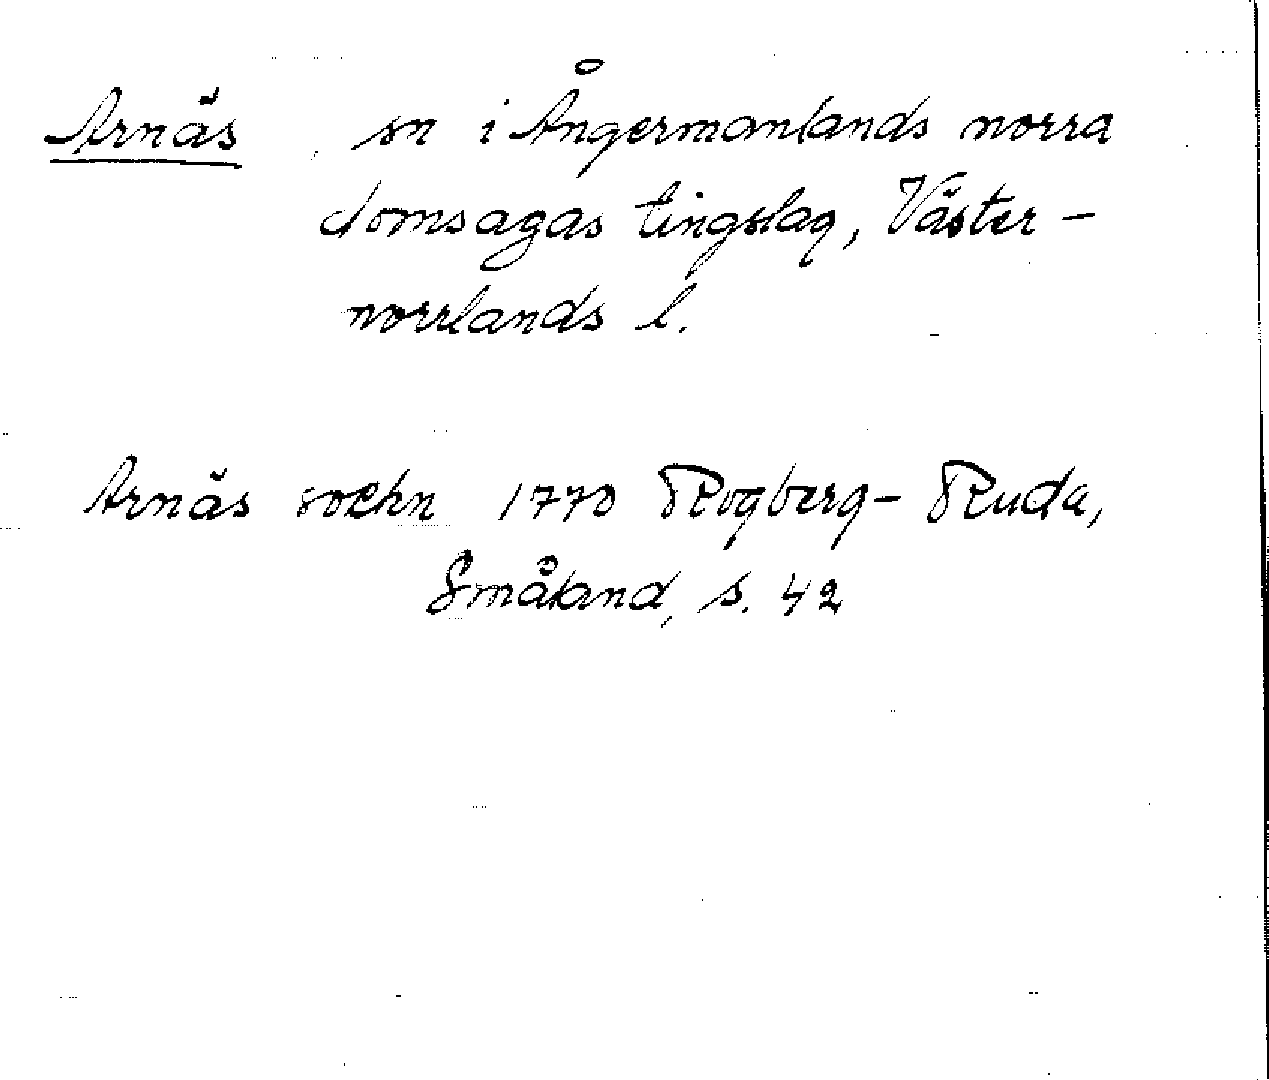 Arnäs sn i Ångermanlands norra
domsagas tingslag, Väster-
norrlands l.
Arnäs sockn 1770 Rogberg-Ruda,
Småland, s. 42